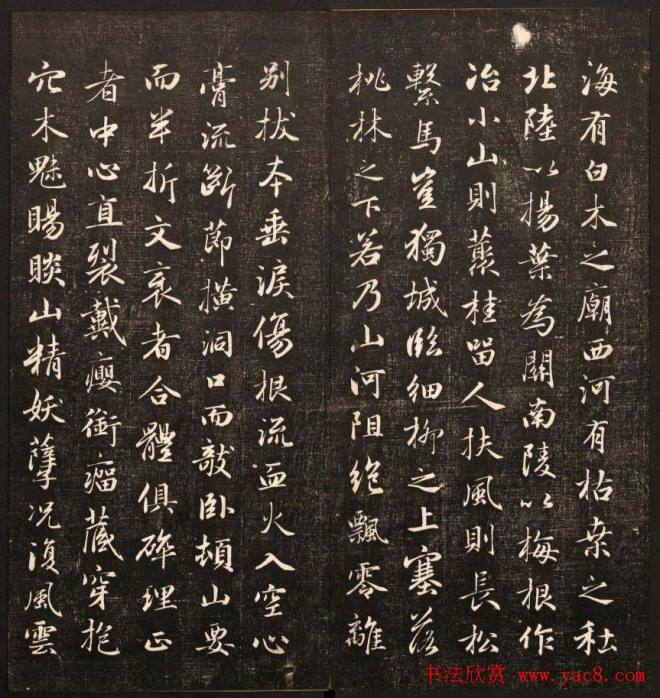 海有白木之廟西河有枯桒之社
北陸以揚葉為關南陵以梅根作
冶小山則藂桂留人扶風則長松
繫馬豈獨城臨細柳之上塞落
桃林之下若乃山河阻絶飄零離
別拔本垂淚傷根流血火入空心
膏流斷節橫洞口而敧臥頓山要
而半折文衺者合體俱碎理正
者中心直裂戴癭銜瘤藏穿抱
穴木魅睗睒山精妖孽況復風雲
书法欣赏 www.yac8.com